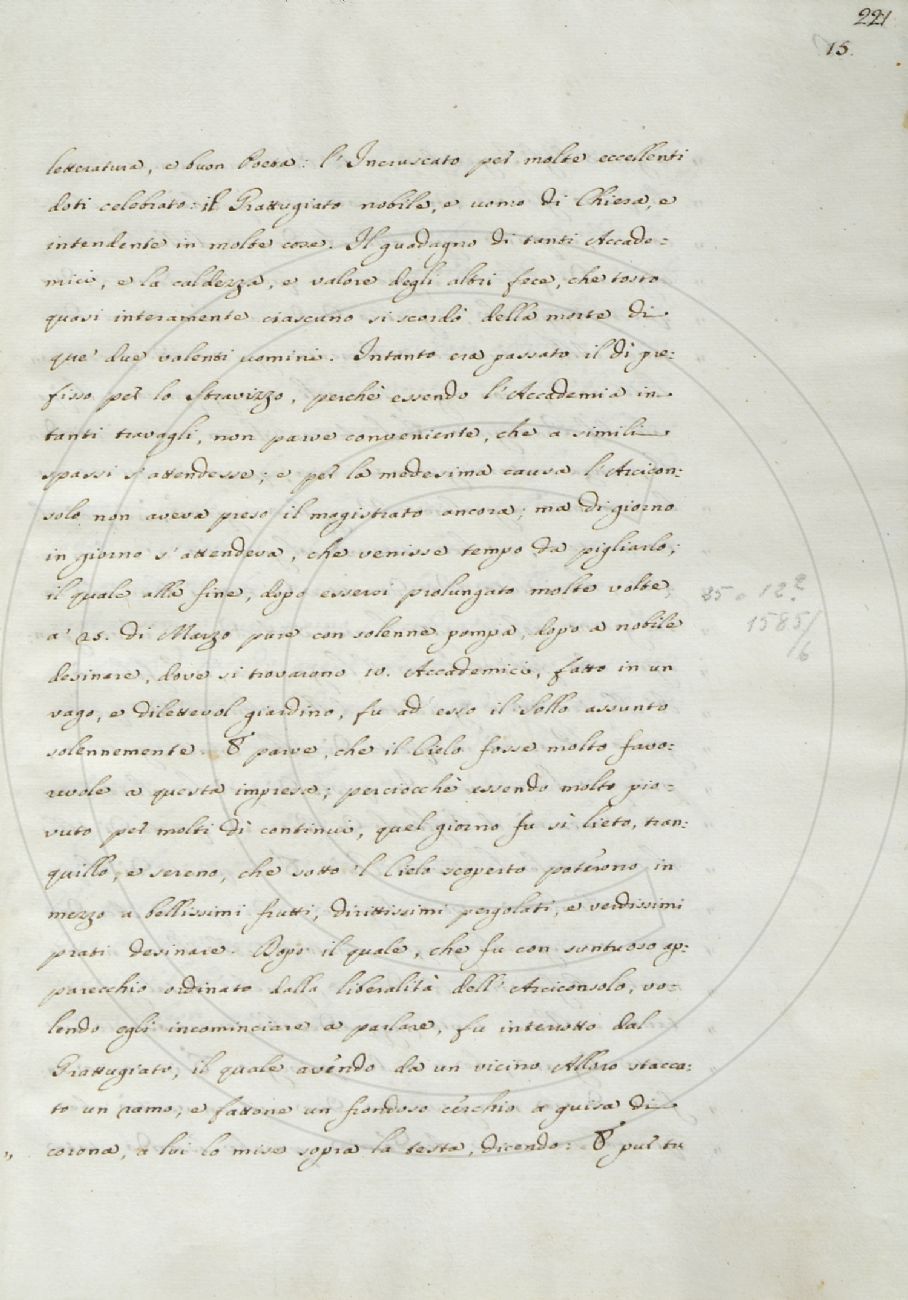 221
15.
letteratura, e buon Poeta: l'Incruscato per molte eccellenti
doti celebrato: il Grattugiato nobile, e uomo di Chiesa, e
intendente in molte cose. Il guadagno di tanti Accade=
mici, e la caldezza, e valore degli altri fece, che tosto
quasi interamente ciascuno si scordò della morte di
que' due valenti uomini. Intanto era passato il dì pre=
fisso per lo Stravizzo, perchè essendo l'Accademia in
tanti travagli, non parve conveniente, che a simili
spassi s'attendesse; e per la medesima causa l'Arcicon=
solo non aveva preso il magistrato ancora; ma di giorno
in giorno s'attendeva, che venisse tempo da pigliarlo;
il quale alla fine, dopo esservi prolungato molte volte,
a' 25. di Marzo pure con solenne pompa, dopo a nobile
desinare, dove si trovarono 10. Accademici, fatto in un
vago, e dilettevol giardino, fu ad esso il Sollo assunto
solennemente. E parve, che il Cielo fosse molto favo=
revole a questa impresa; perciocchè essendo molto pio=
vuto per molti dì continui, quel giorno fu sì lieto, tran=
quillo, e sereno, che sotto 'l Cielo scoperto poterono in
mezzo a bellissimi frutti, dirittissimi pergolati, e verdissimi
prati desinare. Dopo il quale, che fu con suntuoso ap=
parecchio ordinato dalla liberalità dell'Arciconsolo, vo=
lendo egli incominciare a parlare, fu interrotto dal
Grattugiato, il quale avendo da un vicino Alloro stacca=
to un ramo, e fattone un frondoso cerchio a guisa di
„ corona, a lui lo mise sopra la testa, dicendo: E pur tu
1585/
/6